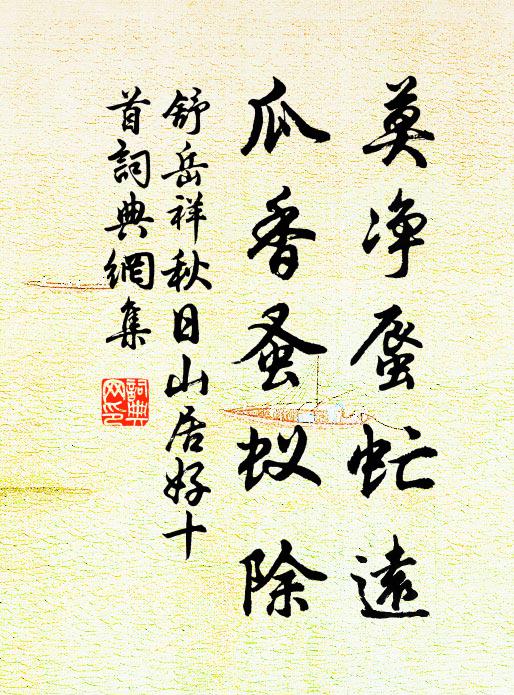 莫净蜃虻遠
瓜香蚤蚁除
舒岳祥秋日山居好十
首詞典網集
詞典
网印